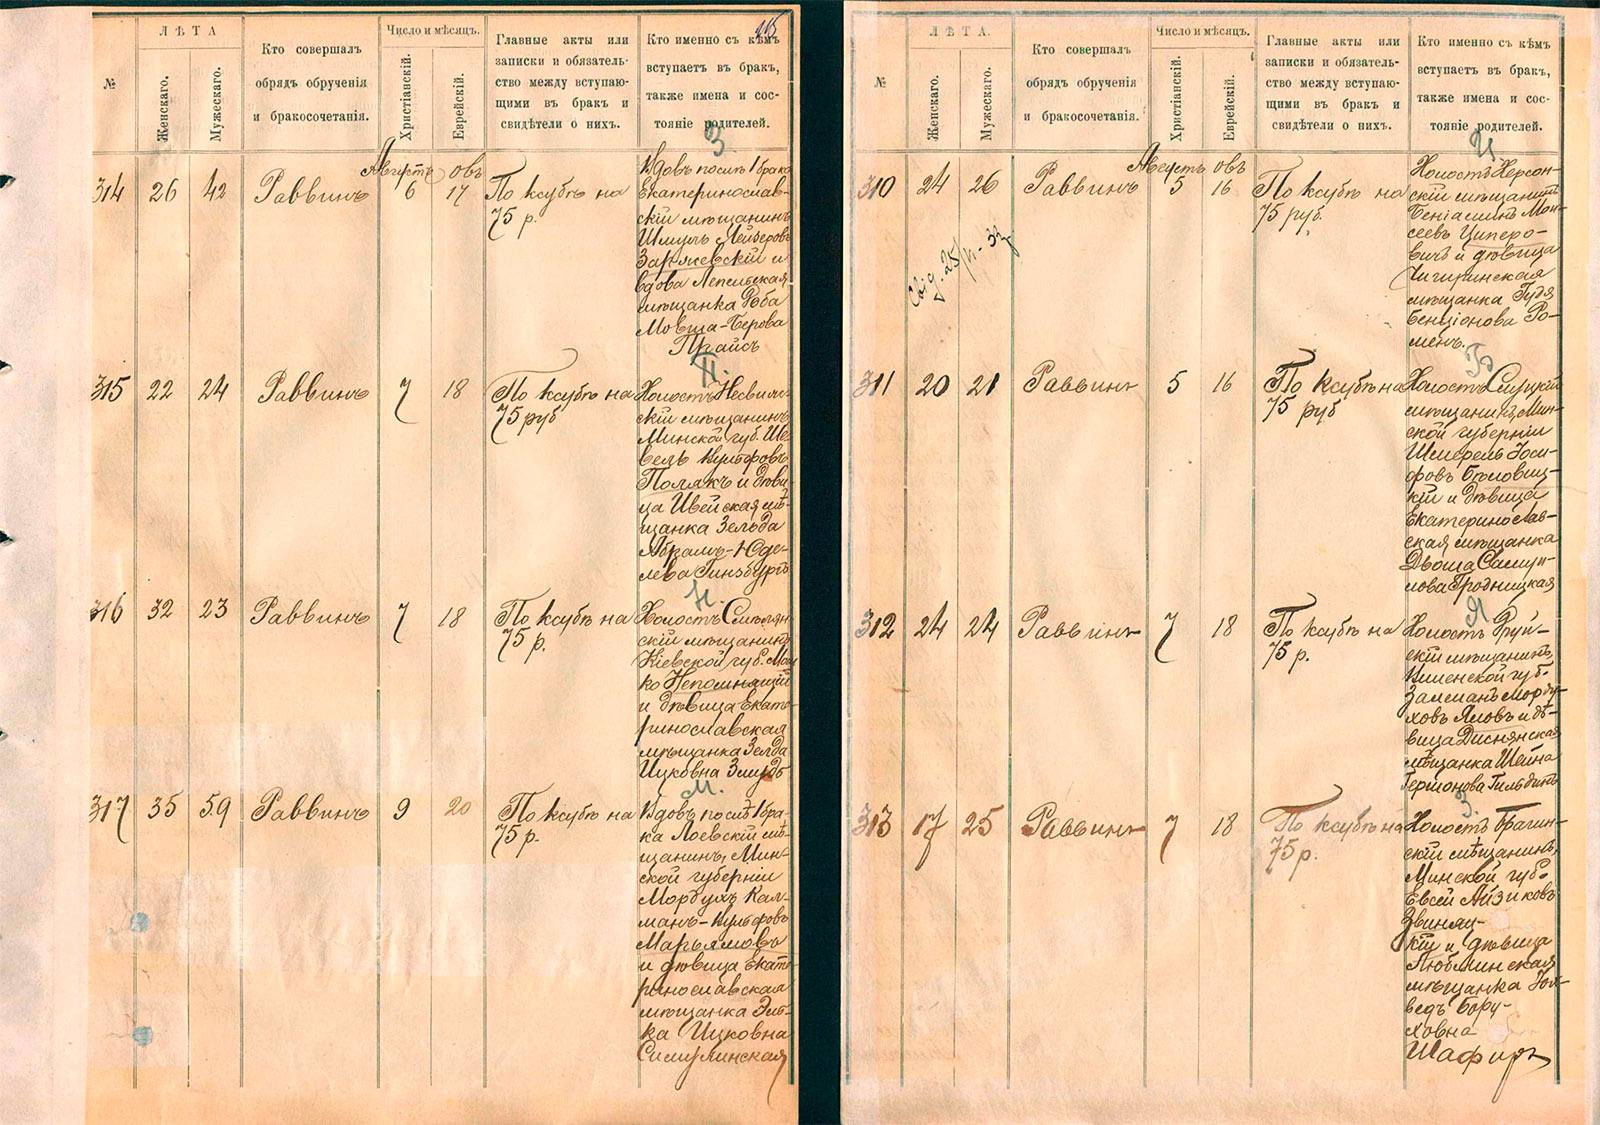 215
№
ЛѢТА
Женскаго.
Мужескаго.
Кто совершалъ
обрядъ обрученія
и бракосочетанія.
Число и мѣсяцъ.
Христіанскій.
Еврейскій.
Главные акты или
записки и обязатель-
ство между вступаю-
щими въ бракъ и
свидѣтели о нихъ.
Кто именно съ кѣмъ
вступаетъ въ бракъ,
также имена и сос-
тояніе родителей.
Августъ овъ
З
314 26 42 Раввинъ 6 17
По ксубѣ на
75 р.
Вдовъ послѣ 1 брака
Екатеринослав-
скій мѣщанинъ
Шмуль Лейзеровъ
Заржевскій и
вдова Лепельская
мѣщанка Доба
Мовша-Берова
Прайсъ
П.
315 22 24 Раввинъ 7 18
По ксубѣ на
75 руб
Холостъ Несвиж-
скій мѣщанинъ
Минской губ. Ше-
вель
Полякъ и дѣви-
ца Ивейская мѣ-
щанка Зельда
Абрамъ-Юде-
лева Гинзбургъ
Н.
316 32 23 Раввинъ 7 18
По ксубѣ на
75 р.
Холостъ Смѣлян-
скій мѣщанинъ
Кіевской губ.
ко Непомнящій
и дѣвица Екате-
ринославская
мѣщанка Зелда
Ицковна
М.
317 35 59 Раввинъ 9 20
По ксубѣ на
75 р.
Вдовъ послѣ 1 бра-
ка Лоевскій мѣ-
щанинъ, Мин-
ской губерніи
Мордухъ Кал-
манъ-
Марьямовъ
и дѣвица Екате-
ринославская
мѣщанка Эль-
ка Ицковна
Симулинская
№
ЛѢТА.
Женскаго.
Мужескаго.
Кто совершалъ
обрядъ обрученія
и бракосочетанія.
Число и мѣсяцъ.
Христіанскій.
Еврейскій.
Главные акты или
записки и обязатель-
ство между вступаю-
щими въ бракъ и
свидѣтели о нихъ.
Кто именно съ кѣмъ
вступаетъ въ бракъ,
также имена и сос-
тояніе родителей.
Августъ овъ
Ц
310 24 26 Раввинъ 5 16
По ксубѣ на
75 руб.
Холостъ Херсон-
скій мѣщанинъ
Беніаминъ Мои-
сеевъ Циперо-
вичъ и дѣвица
Чигиринская
мѣщанка Гудя
Бенціонова Ро-
менъ.
Б
311 20 21 Раввинъ 5 16
По ксубѣ на
75 руб
Холостъ Слуцкій
мѣщанинъ, Мин-
ской губерніи
Шмерель Іоси-
фовъ Бѣловиц-
кій и дѣвица
Екатеринослав-
ская мѣщанка
Двоша Самуи-
лова Гродницкая
Я
312 24 24 Раввинъ 7 18
По ксубѣ на
75 р.
Холостъ Друй-
скій мѣщанинъ,
Виленской губ.
Залманъ Морду-
ховъ Ямовъ и дѣ-
вица Диснянская
мѣщанка Шейна
Гершонова
З.
313 17 25 Раввинъ 7 18
По ксубѣ на
75 р.
Холостъ Брагин-
скій мѣщанинъ,
Минской губ.
Евсей Айзиковъ
Звиняц-
кій и дѣвица
Любминская
мѣщанка
Бору-
ховна
Шафиръ